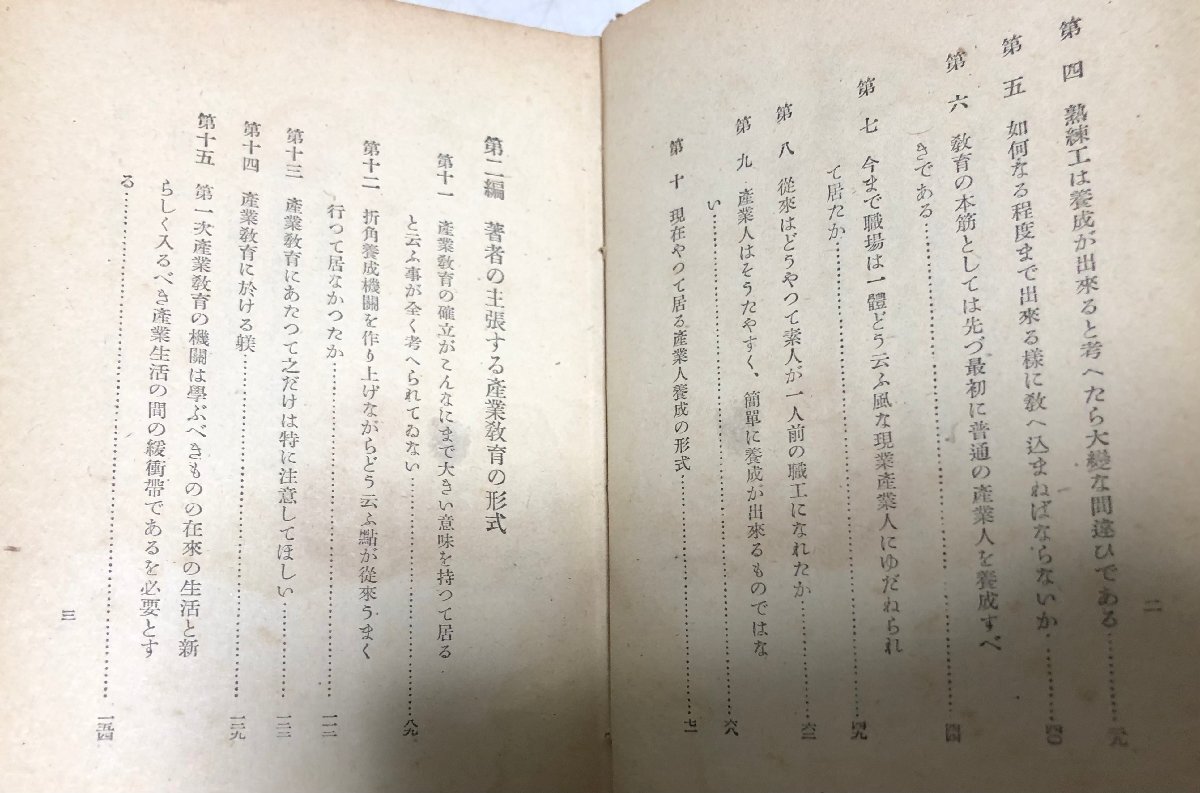 二
第四 熟練工は養成が出來ると考へたら大變な間違ひである……………
第五 如何なる程度まで出來る樣に敎へ込まねばならないか……………四〇
第六 敎育の本筋としては先づ最初に普通の產業人を養成すべ
きである……………四四
第七 今まで職場は一體どう云ふ風な現業產業人にゆだねられ
て居たか……………四九
第八 從來はどうやつて素人が一人前の職工になれたか……………六二
第九 產業人はそうたやすく、簡單に養成が出來るものではな
い……………六八
第十 現在やつて居る產業人養成の形式……………七一
第二編 著者の主張する產業敎育の形式
第十一 產業敎育の確立がこんなにまで大きい意味を持つて居る
と云ふ事が全く考へられてゐない……………八九
第十二 折角養成機關を作り上げながらどう云ふ點が從來うまく
行つて居なかつたか……………一一二
第十三 產業敎育にあたつて之だけは特に注意してほしい……………一二二
第十四 產業敎育に於ける躾……………一二九
第十五 第一次產業敎育の機關は學ぶべきものの在來の生活と新
らしく入るべき產業生活の間の緩衝帶であるを必要とす
る……………一五四
三